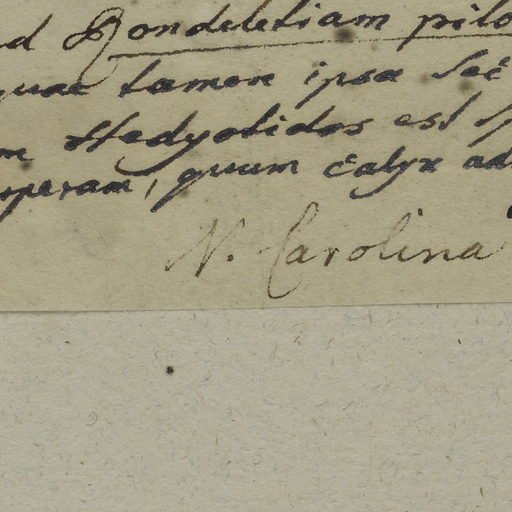 d Rondeletiam pilo
quae tamen ipsa Sec
m Hedyotidos est sp
operam, quum calyx ad
N. Carolina